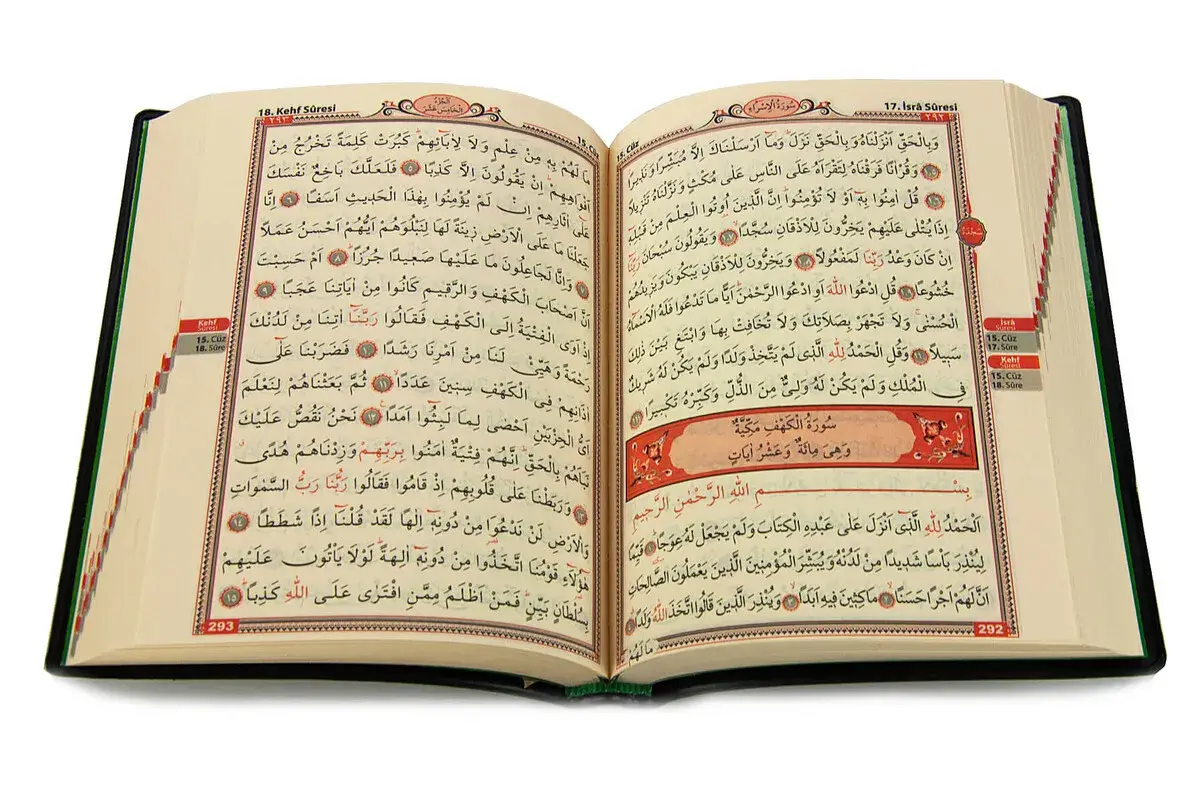 17. İsrâ Sûresi
سُورَةُ الْإِسْرَاءِ
15. Cüz
٢٩٢
وَبِالْحَقِّ اَنْزَلْنَاهُ وَبِالْحَقِّ نَزَلَۜ وَمَٓا اَرْسَلْنَاكَ اِلَّا مُبَشِّرًا وَنَذ۪يرًا
﴿١٠٥﴾ وَقُرْاٰنًا فَرَقْنَاهُ لِتَقْرَاَهُ عَلَى النَّاسِ عَلٰى مُكْثٍ وَنَزَّلْنَاهُ تَنْز۪يلًا
﴿١٠٦﴾ قُلْ اٰمِنُوا بِه۪ٓ اَوْ لَا تُؤْمِنُواۜ اِنَّ الَّذ۪ينَ اُو۫تُوا الْعِلْمَ مِنْ قَبْلِه۪ٓ
اِذَا يُتْلٰى عَلَيْهِمْ يَخِرُّونَ لِلْاَذْقَانِ سُجَّدًا ﴿١٠٧﴾ وَيَقُولُونَ سُبْحَانَ رَبِّنَٓا
اِنْ كَانَ وَعْدُ رَبِّنَا لَمَفْعُولًا ﴿١٠٨﴾ وَيَخِرُّونَ لِلْاَذْقَانِ يَبْكُونَ وَيَز۪يدُهُمْ
خُشُوعًا ﴿١٠٩﴾ قُلِ ادْعُوا اللّٰهَ اَوِ ادْعُوا الرَّحْمٰنَۜ اَيًّا مَا تَدْعُوا فَلَهُ الْاَسْمَٓاءُ
الْحُسْنٰىۚ وَلَا تَجْهَرْ بِصَلَاتِكَ وَلَا تُخَافِتْ بِهَا وَابْتَغِ بَيْنَ ذٰلِكَ
سَب۪يلًا ﴿١١٠﴾ وَقُلِ الْحَمْدُ لِلّٰهِ الَّذ۪ي لَمْ يَتَّخِذْ وَلَدًا وَلَمْ يَكُنْ لَهُ شَر۪يكٌ
فِي الْمُلْكِ وَلَمْ يَكُنْ لَهُ وَلِيٌّ مِنَ الذُّلِّ وَكَبِّرْهُ تَكْب۪يرًا ﴿١١١﴾
سُورَةُ الْكَهْفِ مَكِّيَّةٌ
وَهِيَ مِائَةٌ وَعَشْرُ اٰيَاتٍ
بِسْمِ اللّٰهِ الرَّحْمٰنِ الرَّح۪يمِ
اَلْحَمْدُ لِلّٰهِ الَّذ۪ٓي اَنْزَلَ عَلٰى عَبْدِهِ الْكِتَابَ وَلَمْ يَجْعَلْ لَهُ عِوَجًاۜ ﴿١﴾ قَيِّمًا
لِيُنْذِرَ بَأْسًا شَد۪يدًا مِنْ لَدُنْهُ وَيُبَشِّرَ الْمُؤْمِن۪ينَ الَّذ۪ينَ يَعْمَلُونَ الصَّالِحَاتِ
اَنَّ لَهُمْ اَجْرًا حَسَنًاۙ ﴿٢﴾ مَاكِث۪ينَ ف۪يهِ اَبَدًاۙ ﴿٣﴾ وَيُنْذِرَ الَّذ۪ينَ قَالُوا اتَّخَذَ اللّٰهُ وَلَدًا ﴿٤﴾
مَا لَهُمْ
292
سَجْدَة
İsrâ
Sûresi
15. Cüz
17. Sûre
Kehf
Sûresi
15. Cüz
18. Sûre
18. Kehf Sûresi
اَلْجُزْءُ
الْخَامِسَ عَشَرَ
٢٩٣
مَا لَهُمْ بِه۪ مِنْ عِلْمٍ وَلَا لِاٰبَٓائِهِمْۜ كَبُرَتْ كَلِمَةً تَخْرُجُ مِنْ
اَفْوَاهِهِمْۜ اِنْ يَقُولُونَ اِلَّا كَذِبًا ﴿٥﴾ فَلَعَلَّكَ بَاخِعٌ نَفْسَكَ
عَلٰٓى اٰثَارِهِمْ اِنْ لَمْ يُؤْمِنُوا بِهٰذَا الْحَد۪يثِ اَسَفًا ﴿٦﴾ اِنَّا
جَعَلْنَا مَا عَلَى الْاَرْضِ ز۪ينَةً لَهَا لِنَبْلُوَهُمْ اَيُّهُمْ اَحْسَنُ عَمَلًا
﴿٧﴾ وَاِنَّا لَجَاعِلُونَ مَا عَلَيْهَا صَع۪يدًا جُرُزًاۜ ﴿٨﴾ اَمْ حَسِبْتَ
اَنَّ اَصْحَابَ الْكَهْفِ وَالرَّق۪يمِ كَانُوا مِنْ اٰيَاتِنَا عَجَبًا ﴿٩﴾
اِذْ اَوَى الْفِتْيَةُ اِلَى الْكَهْفِ فَقَالُوا رَبَّنَٓا اٰتِنَا مِنْ لَدُنْكَ
رَحْمَةً وَهَيِّئْ لَنَا مِنْ اَمْرِنَا رَشَدًا ﴿١٠﴾ فَضَرَبْنَا عَلٰٓى
اٰذَانِهِمْ فِي الْكَهْفِ سِن۪ينَ عَدَدًاۙ ﴿١١﴾ ثُمَّ بَعَثْنَاهُمْ لِنَعْلَمَ
اَيُّ الْحِزْبَيْنِ اَحْصٰى لِمَا لَبِثُٓوا اَمَدًا۟ ﴿١٢﴾ نَحْنُ نَقُصُّ عَلَيْكَ
نَبَاَهُمْ بِالْحَقِّۜ اِنَّهُمْ فِتْيَةٌ اٰمَنُوا بِرَبِّهِمْ وَزِدْنَاهُمْ هُدًىۗ
﴿١٣﴾ وَرَبَطْنَا عَلٰى قُلُوبِهِمْ اِذْ قَامُوا فَقَالُوا رَبُّنَا رَبُّ السَّمٰوَاتِ
وَالْاَرْضِ لَنْ نَدْعُوَ۬ا مِنْ دُونِه۪ٓ اِلٰهًا لَقَدْ قُلْنَٓا اِذًا شَطَطًا ﴿١٤﴾
هٰٓؤُ۬لَٓاءِ قَوْمُنَا اتَّخَذُوا مِنْ دُونِه۪ٓ اٰلِهَةًۜ لَوْلَا يَأْتُونَ عَلَيْهِمْ
بِسُلْطَانٍ بَيِّنٍۜ فَمَنْ اَظْلَمُ مِمَّنِ افْتَرٰى عَلَى اللّٰهِ كَذِبًاۜ ﴿١٥﴾
293
Kehf
Sûresi
15. Cüz
18. Sûre